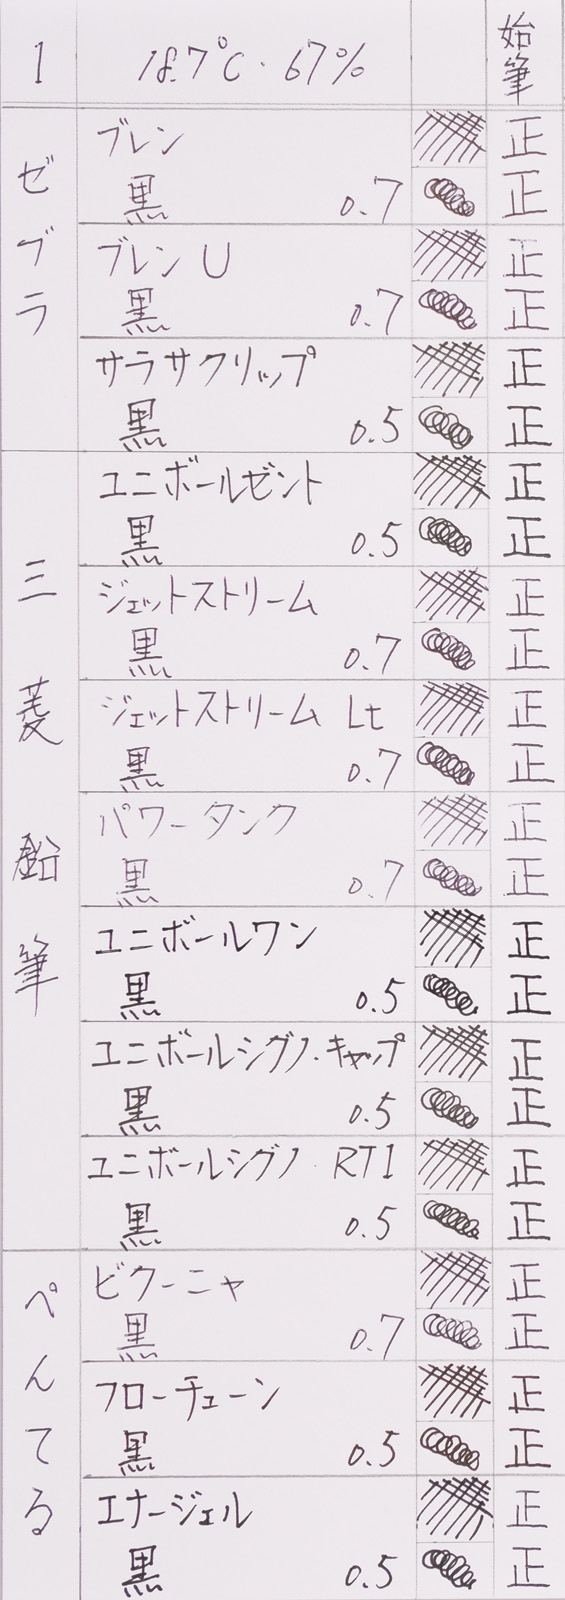 1 18.7℃・67% 始筆
ゼブラ
ブレン 正
黒 0.7 正
ブレン U 正
黒 0.7 正
サラサクリップ 正
黒 0.5 正
三菱鉛筆
ユニボールゼント 正
黒 0.5 正
ジェットストリーム 正
黒 0.7 正
ジェットストリーム Lt 正
黒 0.7 正
パワータンク 正
黒 0.7 正
ユニボールワン 正
黒 0.5 正
ユニボールシグノ・キャップ 正
黒 0.5 正
ユニボールシグノ・RT1 正
黒 0.5 正
ぺんてる
ビクーニャ 正
黒 0.7 正
フローチューン 正
黒 0.5 正
エナージェル 正
黒 0.5 正